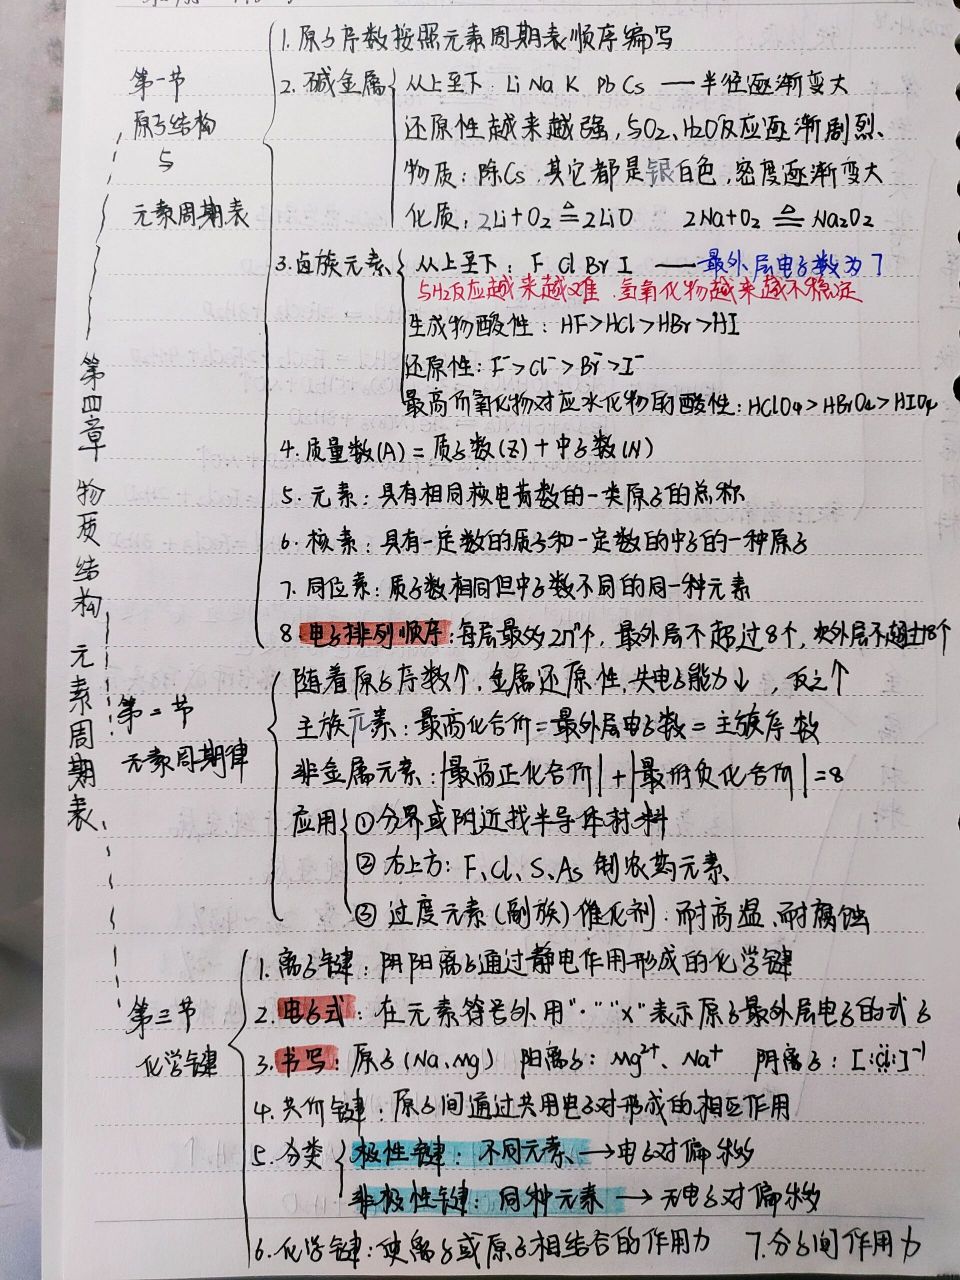 第一节
原子结构
与
元素周期表
1. 原子序数按照元素周期表顺序编写
2. 碱金属 从上至下: Li Na K Pb Cs — 半径逐渐变大
还原性越来越强,与O2、H2O反应逐渐剧烈、
物质:除Cs、其它都是银白色,密度逐渐变大
化质:2Li+O2 ≜ 2LiO 2Na+O2 ≜ Na2O2
3. 卤族元素 从上至下: F Cl Br I — 最外层电子数为7
与H2反应越来越难、氢氧化物越来越不稳定
生成物酸性: HF>HCl>HBr>HI
还原性: F⁻>Cl⁻>Br⁻>I⁻
最高价氧化物对应水化物的酸性: HClO4>HBrO4>HIO4
4. 质量数(A)=质子数(Z)+中子数(N)
5. 元素:具有相同核电荷数的一类原子的总称
6. 核素:具有一定数的质子和一定数的中子的一种原子
7. 同位素:质子数相同但中子数不同的同一种元素
8. 电子排列顺序:每层最多2n²个,最外层不超过8个,次外层不超过18个
第四章 物质结构 元素周期表
第二节
元素周期律
随着原子序数↑,金属还原性,失电子能力↓,反之↑
主族元素:最高化合价=最外层电子数=主族序数
非金属元素:|最高正化合价|+|最低负化合价|=8
应用 ①分界或附近找半导体材料
②右上方: F、Cl、S、As 制农药元素、
③过度元素(副族)催化剂、耐高温、耐腐蚀
第三节
化学键
1. 离子键:阴阳离子通过静电作用形成的化学键
2. 电子式:在元素符号外用"·""x"表示原子最外层电子的式子
3. 书写:原子(Na、Mg) 阳离子: Mg²⁺、Na⁺ 阴离子: [:C̈l̤:]⁻¹
4. 共价键:原子间通过共用电子对形成的相互作用
5. 分类 极性键:不同元素→电子对偏移
非极性键:同种元素→无电子对偏移
6. 化学键:使离子或原子相结合的作用力 7. 分子间作用力